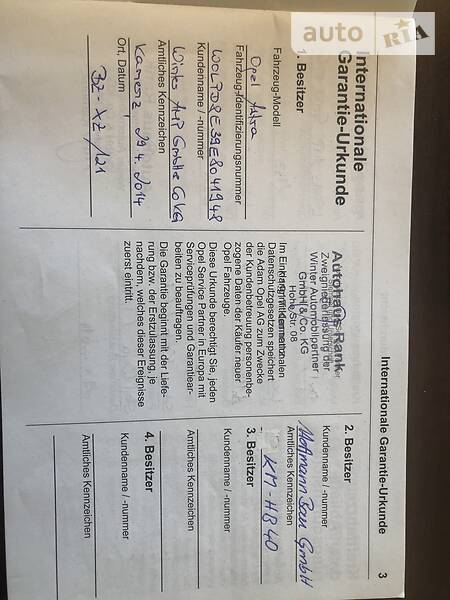 auto RIA
Internationale Garantie-Urkunde
3
Internationale
Garantie-Urkunde
1. Besitzer
Fahrzeug-Modell
Opel Astra
Fahrzeug-Identifizierungsnummer
Kundenname / -nummer
Winter AMP GmbH & Co KG
Amtliches Kennzeichen
Kamenz 29.4.2014
Ort, Datum
BZ-XZ 121
Autohaus Rank
Zweigniederlassung der
Winter Automobilpartner
GmbH & Co. KG
Hohe Str. 08
Im Einklang mit den nationalen
Datenschutzgesetzen speichert
die Adam Opel AG zum Zwecke
der Kundenbetreuung personenbe-
zogene Daten der Käufer neuer
Opel Fahrzeuge.
Diese Urkunde berechtigt Sie, jeden
Opel Service Partner in Europa mit
Serviceprüfungen und Garantiear-
beiten zu beauftragen.
Die Garantie beginnt mit der Liefe-
rung bzw. der Erstzulassung, je
nachdem, welches dieser Ereignisse
zuerst eintritt.
2. Besitzer
Kundenname / -nummer
Hoffmann Bau GmbH
Amtliches Kennzeichen
KM-HB 40
3. Besitzer
Kundenname / -nummer
Amtliches Kennzeichen
4. Besitzer
Kundenname / -nummer
Amtliches Kennzeichen